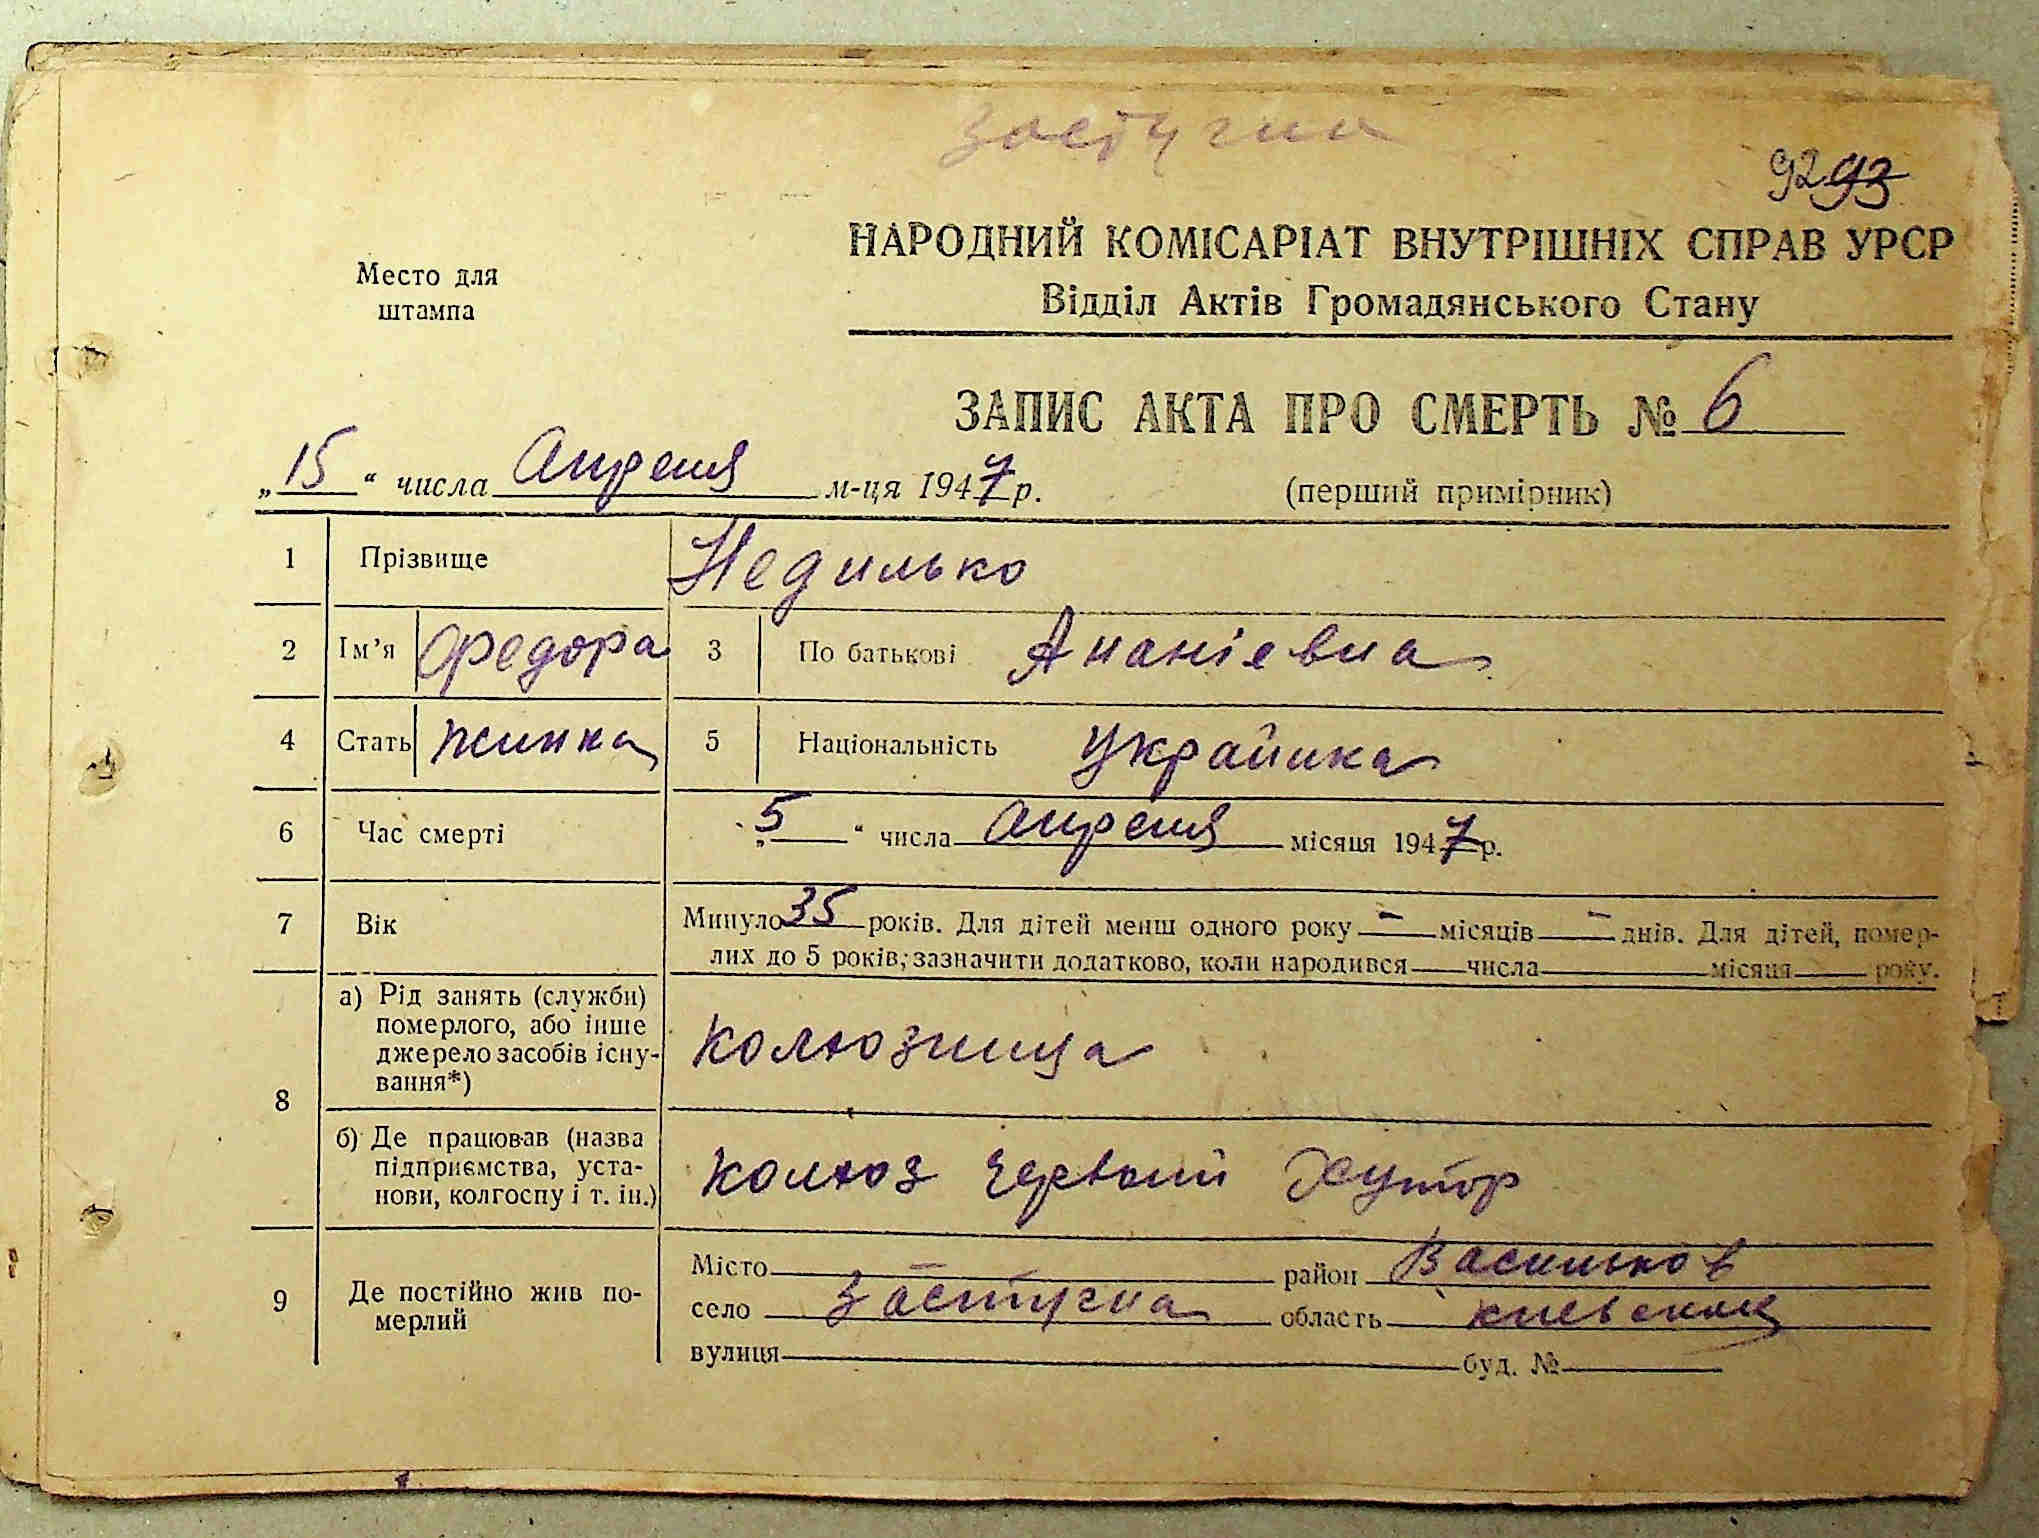 Застугна
92 93
НАРОДНИЙ КОМІСАРІАТ ВНУТРІШНІХ СПРАВ УРСР
Відділ Актів Громадянського Стану
Место для
штампа
ЗАПИС АКТА ПРО СМЕРТЬ № 6
„15“ числа Апреля м-ця 1947 р.
(перший примірник)
1 Прізвище Недилько
2 Ім’я Федора 3 По батькові Ананіевна
4 Стать жинка 5 Національність Украйика
6 Час смерті „5“ числа Апреля місяця 1947 р.
7 Вік Минуло 35 років. Для дітей менш одного року — місяців — днів. Для дітей, помер-
лих до 5 років, зазначити додатково, коли народився числа місяця року.
8 а) Рід занять (служби)
померлого, або інше
джерело засобів існу-
вання*)
колхозница
б) Де працював (назва
підприємства, уста-
нови, колгоспу і т. ін.)
колхоз Червоний Хутор
9 Де постійно жив по-
мерлий
Місто район Васильков
село Застугна область киевская
вулиця буд. №